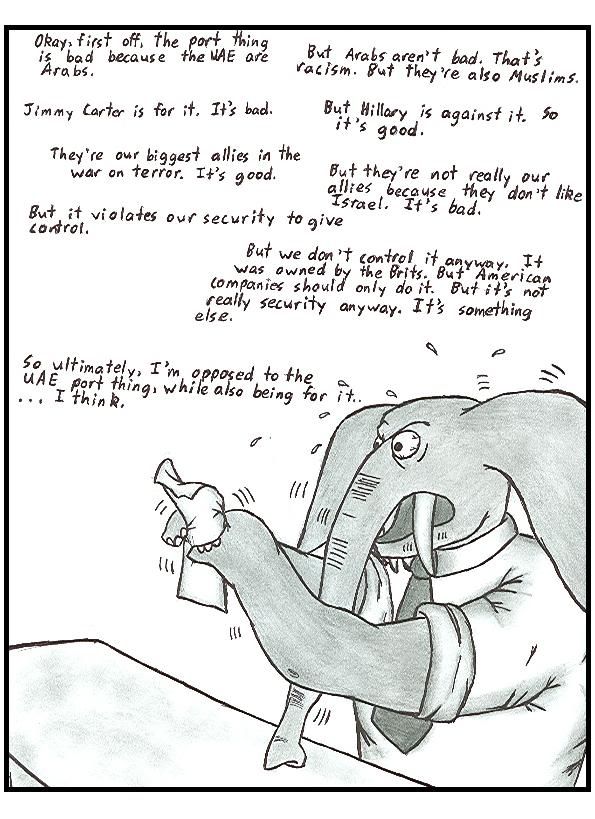 Okay, first off, the port thing
is bad because the UAE are
Arabs.
But Arabs aren't bad. That's
racism. But they're also Muslims.
Jimmy Carter is for it. It's bad.
But Hillary is against it. So
it's good.
They're our biggest allies in the
war on terror. It's good.
But they're not really our
allies because they don't like
Israel. It's bad.
But it violates our security to give
control.
But we don't control it anyway. It
was owned by the Brits. But American
companies should only do it. But it's not
really security anyway. It's something
else.
So ultimately, I'm opposed to the
UAE port thing, while also being for it..
... I think.